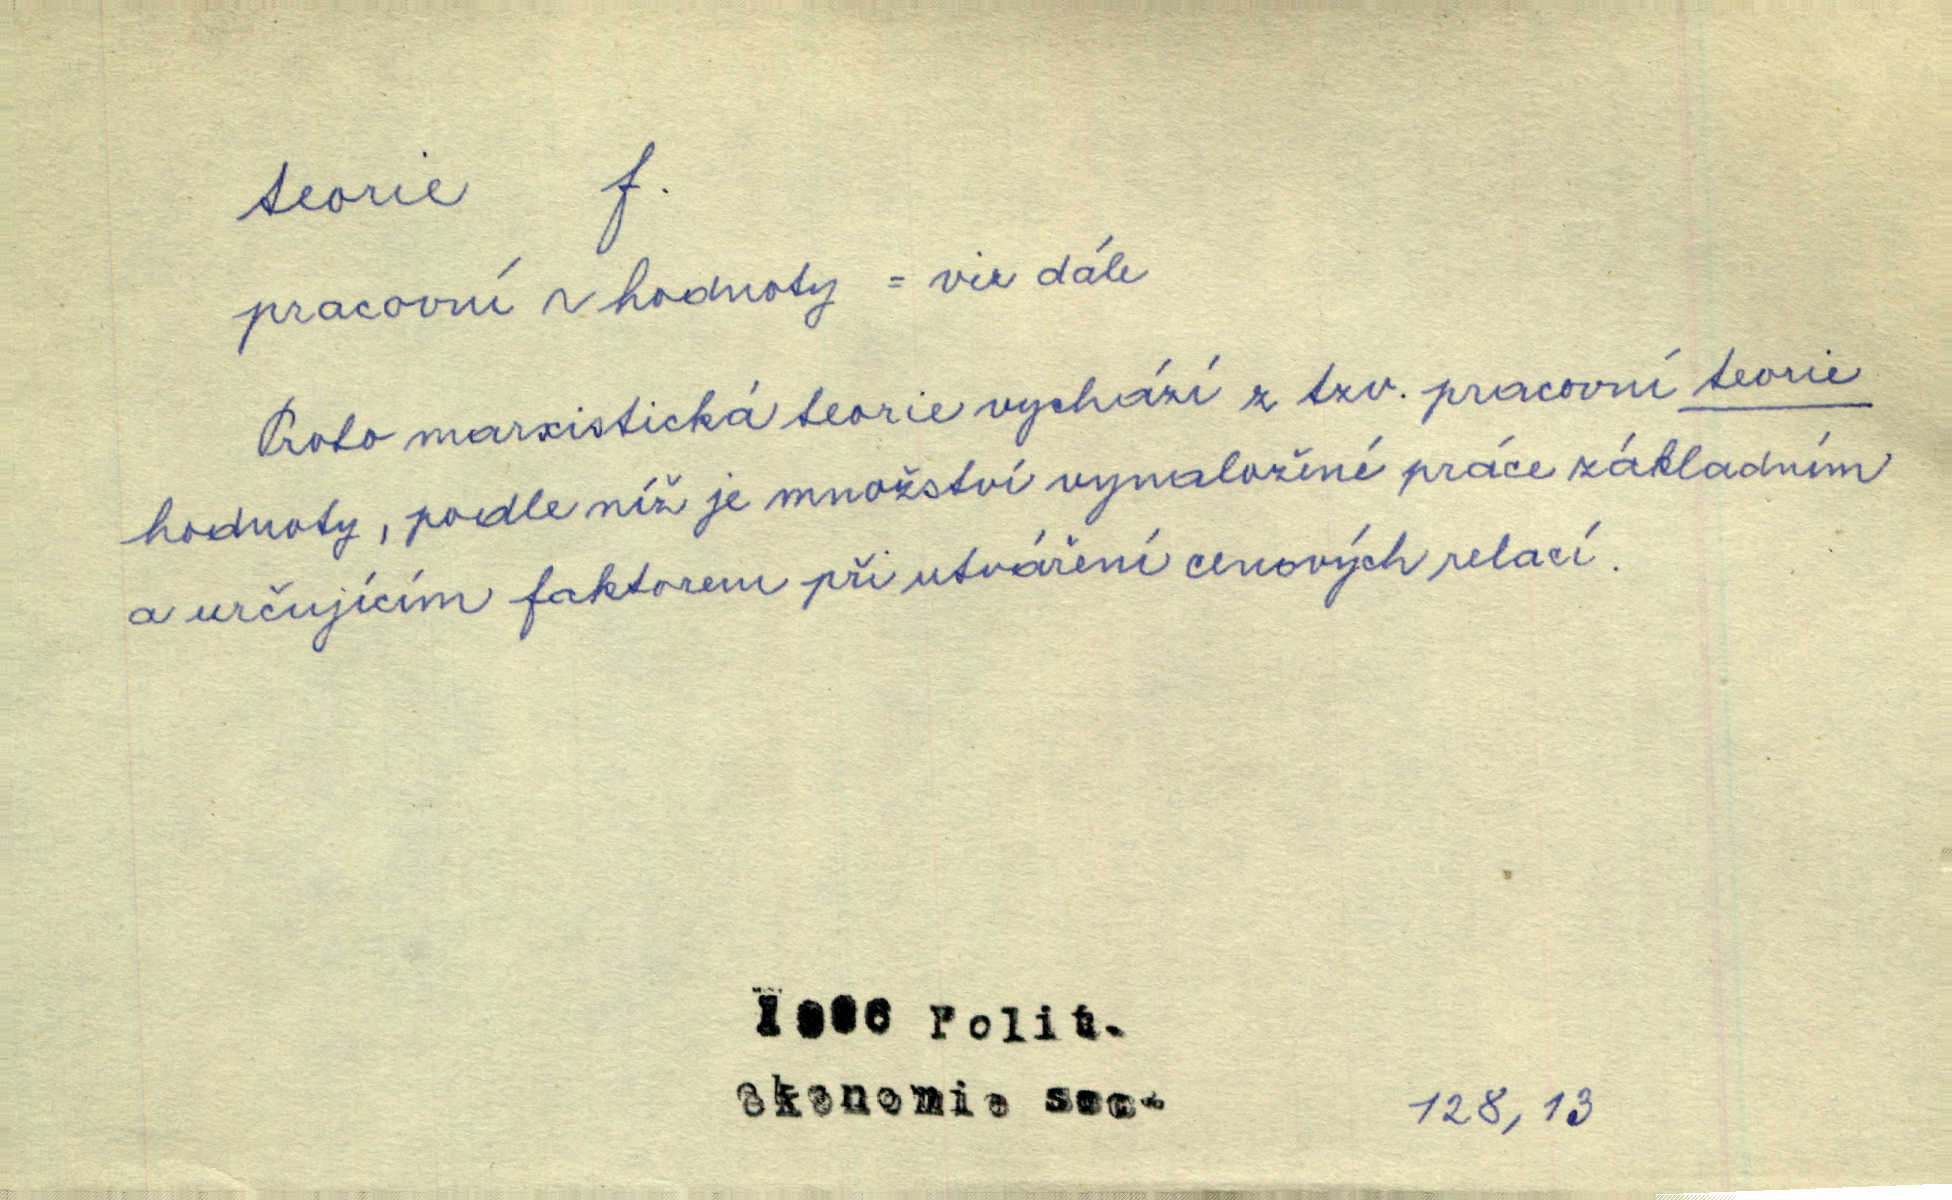 teorie f.
pracovní ~ hodnoty = viz dále
Proto marxistická teorie vychází z tzv. pracovní teorie
hodnoty, podle níž je množství vynaložené práce základním
a určujícím faktorem při utváření cenových relací.
Polit.
ekonomie soc.
128, 13